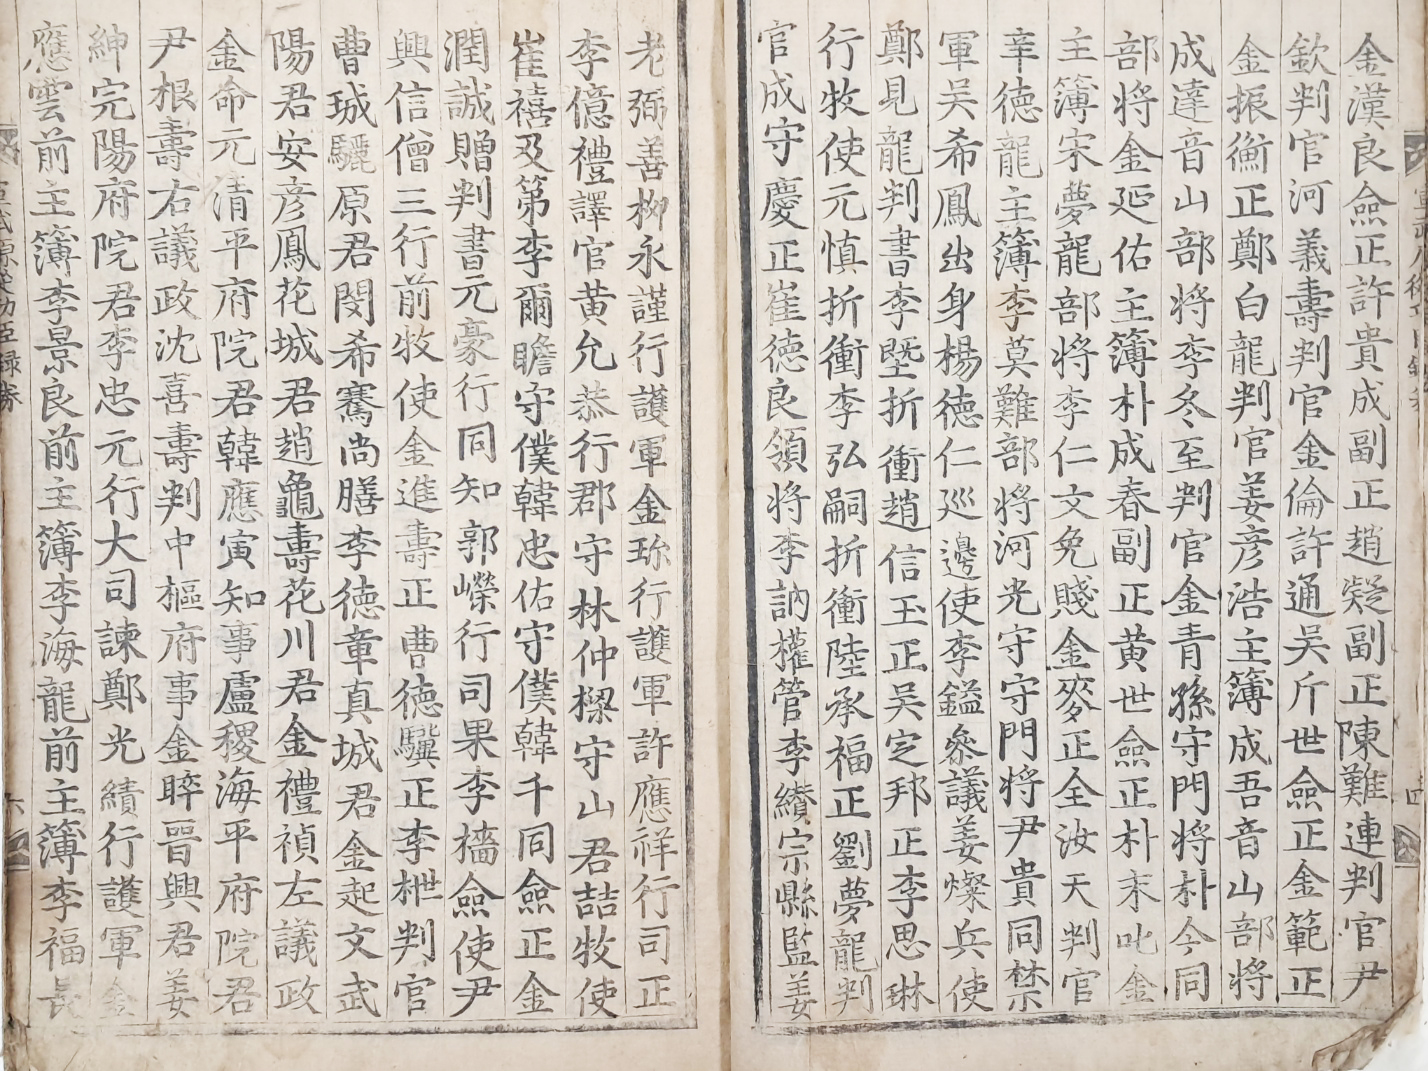 金漢良僉正許貴成副正趙凝副正陳難連判官尹
欽判官河義壽判官金倫許通吳斤世僉正金範正
金振衡正鄭白龍判官姜彦浩主簿成吾音山部將
成達音山部將李冬至判官金青孫守門將朴今同
部將金延佑主簿朴成春副正黃世僉正朴末叱金
主簿宋夢龍部將李仁文免賤金麥正全汝天判官
辛德龍主簿李莫難部將河光守守門將尹貴同禁
軍吳希鳳出身楊德仁巡邊使李鎰參議姜燦兵使
鄭見龍判書李塈折衝趙信玉正吳定邦正李思琳
行牧使元慎折衝李弘嗣折衝陸承福正劉夢龍判
官成守慶正崔德良領將李訥權管李纘宗縣監姜
老弼善柳永謹行護軍金珎行護軍許應祥行司正
李億禮譯官黃允恭行郡守林仲樑守山君喆牧使
崔禧及第李爾瞻守僕韓忠佑守僕韓千同僉正金
潤誠贈判書元豪行同知郭嶸行司果李檣僉使尹
興信僧三行前牧使金進壽正曹德驥正李枻判官
曹珹驪原君閔希騫尚膳李德章真城君金起文武
陽君安彦鳳花城君趙龜壽花川君金禮禎左議政
金命元清平府院君韓應寅知事盧稷海平府院君
尹根壽右議政沈喜壽判中樞府事金晬晉興君姜
紳完陽府院君李忠元行大司諫鄭光績行護軍金
應雲前主簿李景良前主簿李海龍前主簿李福長